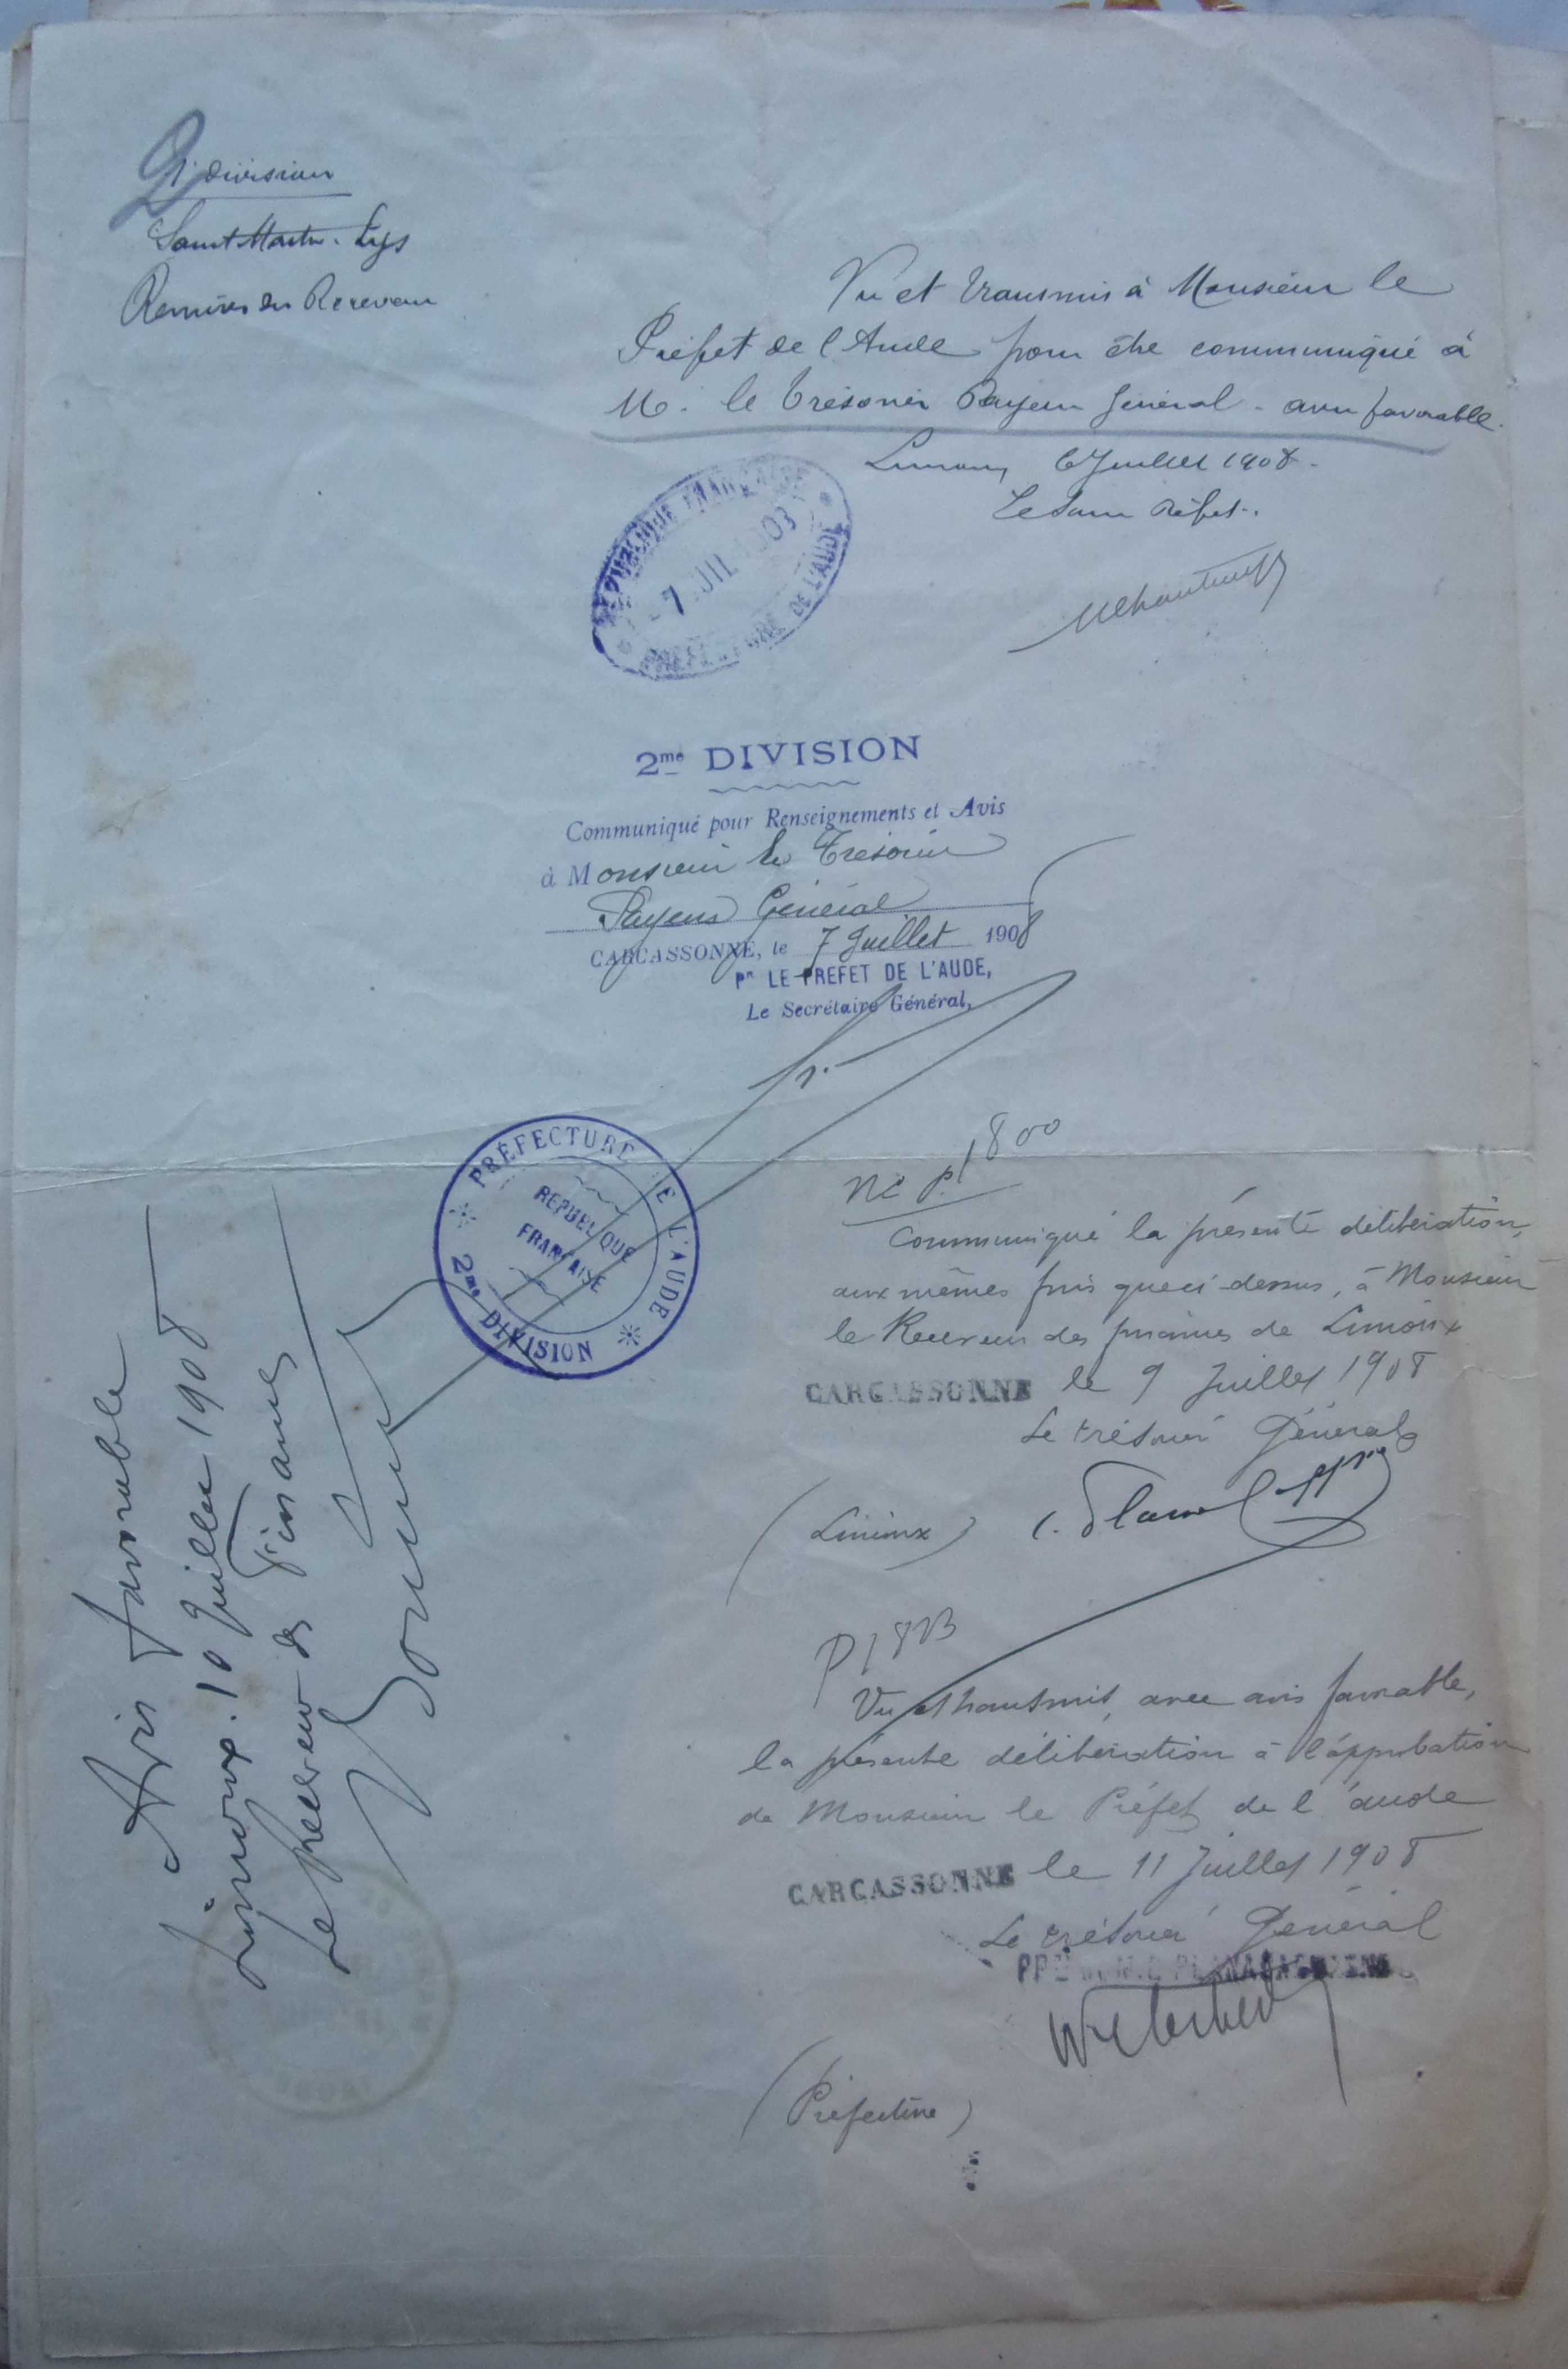 2 Division
Saint Martin-Lys
Remises du Receveur
Vu et transmis à Monsieur le
Préfet de l'Aude pour être communiqué à
M. le Trésorier Payeur Général - avis favorable.
Limoux, 6 Juillet 1908.
Le Sous Préfet.
RÉPUBLIQUE FRANÇAISE
7 JUIL
PRÉFECTURE DE L'AUDE
2me DIVISION
Communiqué pour Renseignements et Avis
à Monsieur le Trésorier
Payeur Général
CARCASSONNE, le 7 Juillet 1908
Pr LE PREFET DE L'AUDE,
Le Secrétaire Général,
PRÉFECTURE DE L'AUDE
REPUBLIQUE
FRANÇAISE
2me DIVISION
No P. 1800
Communiqué la présente délibération,
aux mêmes fins que ci-dessus, à Monsieur
le Receveur des finances de Limoux
CARCASSONNE le 9 Juillet 1908
Le trésorier Général
(Limoux)
Avis favorable
Limoux. 10 Juillet 1908
Le Receveur des Finances
P 1823
Vu et transmis, avec avis favorable,
la présente délibération à l'approbation
de Monsieur le Préfet de l'aude
CARCASSONNE le 11 Juillet 1908
Le trésorier Général
(Préfecture)